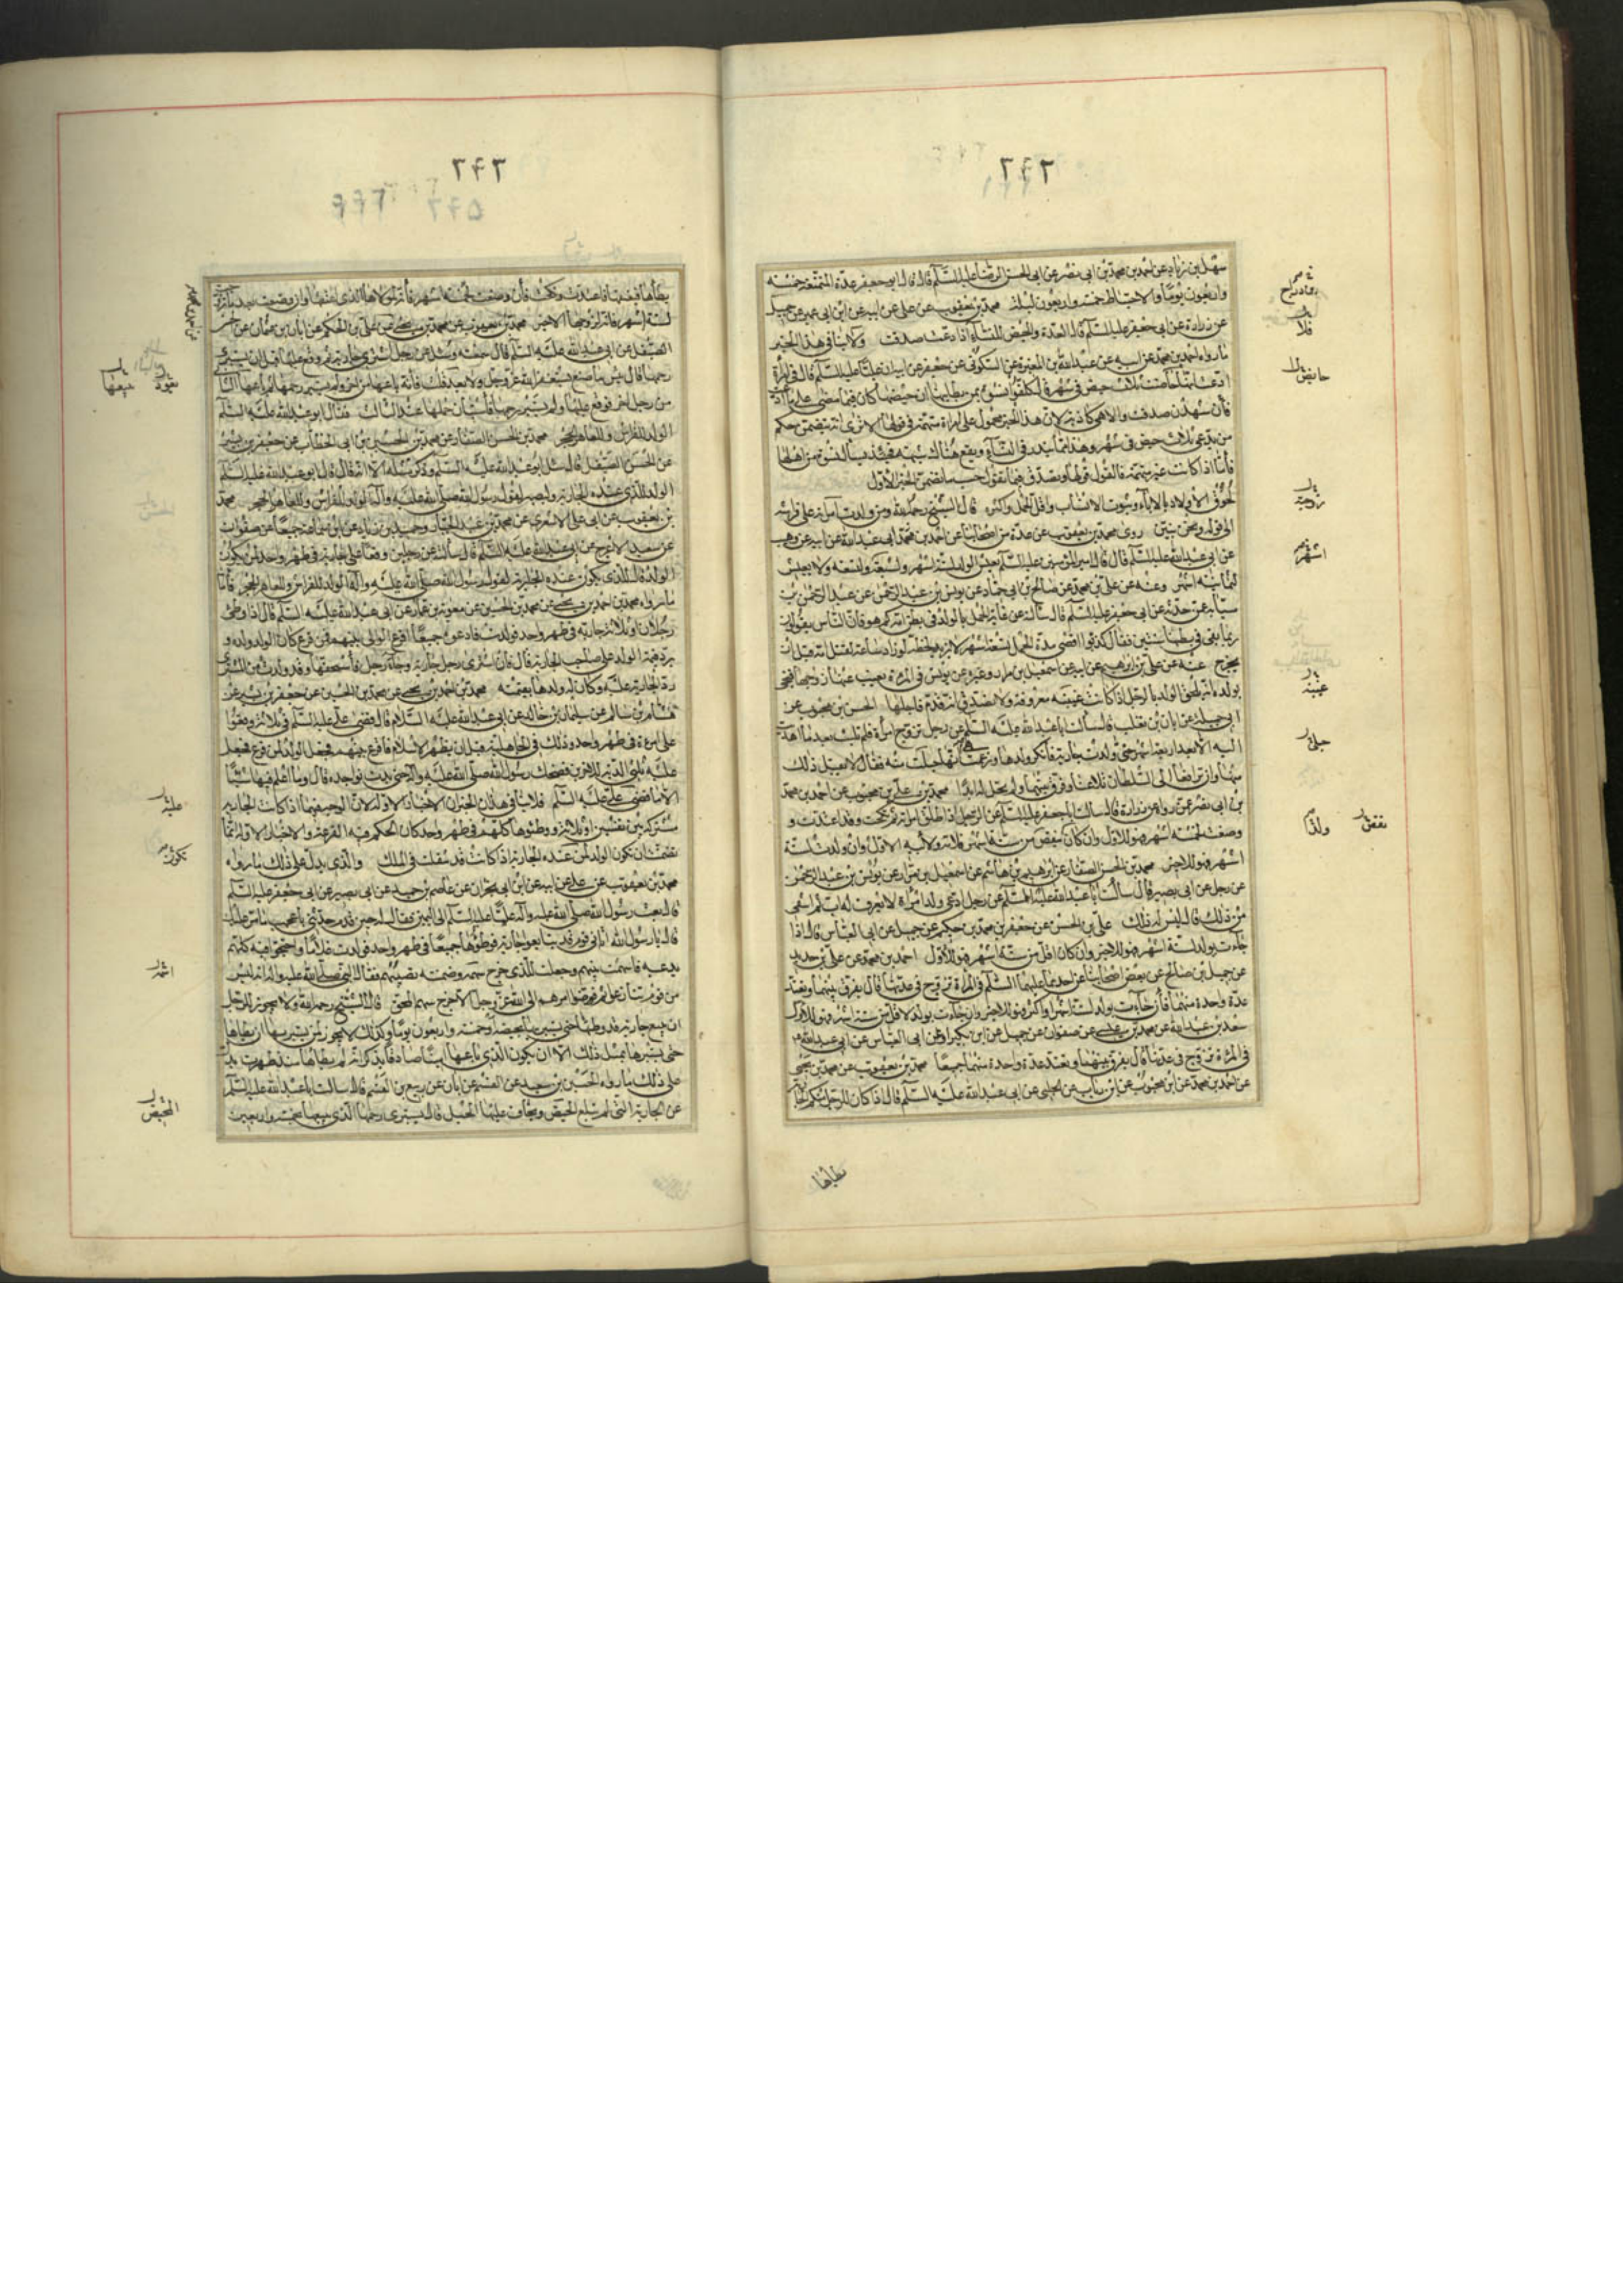 سهل بن زياد عن احمد بن محمد بن ابى نصر عن ابى الحسن الرضا عليه السلم قال قال ابو جعفر عدة المتمتعة خمسة
واربعون يوما والاحتياط خمسة واربعون ليلة محمد بن يعقوب عن على عن ابيه عن ابن ابى عمير عن جميل
عن زرارة عن ابى جعفر عليه السلم قال العدة والحيض للنساء اذا ادعت صدقت ولا ينافى هذا الخبر
ما رواه احمد بن محمد عن ابيه عن عبد الله بن المغيرة عن السكونى عن جعفر عن ابيه ان عليا عليه السلم قال فى امراة
ادعت انها حاضت ثلاث حيض فى شهر قال كلفوا نسوة من بطانتها ان حيضها كان فيما مضى على ما ادعت
فان شهدن صدقت والا فهى كاذبة لان هذا الخبر محمول على امراة متهمة فى قولها الا ترى انه تضمن حكم
من يدعى ثلاث حيض فى شهر وهذا
فاما اذا كانت غير متهمة فالقول قولها وتصدق فيما تقول حسب ما تضمن الخبر الاول
لحوق الاولاد بالاباء وثبوت الانساب واقل الحمل واكثره قال الشيخ رحمه الله ومن ولدت امراته على فراشه
الى قوله ومحن بنتين روى محمد بن يعقوب عن عدة من اصحابنا عن احمد بن محمد ابى عبد الله عن ابيه عن وهب
عن ابى عبد الله عليه السلم قال قال امير المؤمنين عليه السلم يعيش الولد لستة اشهر ولسبعة ولتسعة ولا يعيش
لثمانية اشهر وعنه عن على بن محمد عن صالح بن ابى حماد عن يونس بن عبد الرحمن عن عبد الرحمن بن
سيابة عن حدثه عن ابى جعفر عليه السلم قال سالته عن غاية الحمل بالولد فى بطن امه كم هو فان الناس يقولون
ربما بقى فى بطنها سنتين فقال كذبوا اقصى مدة الحمل تسعة اشهر لا يزيد لحظة لو زاد ساعة لقتل امه قبل ان
يخرج عنه عن على بن ابرهيم عن ابيه عن اسمعيل بن مرار وغيره عن يونس فى المرءة يغيب عنها زوجها فتجئ
بولد انه لا يلحق الولد بالرجل اذا كانت غيبته معروفة ولا تصدق انه قدم فاحبلها الحسن بن محبوب عن
ابى جميلة عن ابان بن تغلب قال سالت ابا عبد الله عليه السلم عن رجل تزوج امراة فلم تلبث بعد ما اهديت
اليه الا اربعة اشهر حتى ولدت جارية فانكر ولدها وزعمت انها حبلت منه فقال لا يقبل ذلك
منها وان ترافعا الى السلطان تلاعنا وفرق بينهما ولم تحل له ابدا محمد بن على بن محبوب عن احمد بن محمد
بن ابى نصر عن رواه عن زرارة قال سالت ابا جعفر عليه السلم عن الرجل اذا طلق امراته ثم نكحت وقد اعتدت و
وضعت لخمسة اشهر فهو للاول وان كان ينقص من ستة اشهر فلامه ولابيه الاول وان ولدت لستة
اشهر فهو للاخير محمد بن الحسن الصفار عن ابرهيم بن هاشم عن اسمعيل بن مرار عن يونس بن عبد الرحمن
عن رجل عن ابى بصير قال سالت ابا عبد الله عليه السلم عن رجل ادعى ولد امراة لا يعرف له اب ثم انتفى
من ذلك قال ليس له ذلك على بن الحسن عن جعفر بن محمد بن حكيم عن جميل عن ابى العباس قال اذا
جاءت بولد لستة اشهر فهو للاخير وان كان اقل من ستة اشهر فهو للاول احمد بن محمد عن على بن حديد
عن جميل بن صالح عن بعض اصحابنا عن احدهما عليهما السلم فى المراة تزوج فى عدتها قال يفرق بينهما وتعتد
عدة واحدة منهما فان جاءت بولد لستة اشهر او اكثر فهو للاخير وان جاءت بولد لاقل من ستة اشهر فهو للاول
سعد بن عبد الله عن محمد بن عيسى عن صفوان عن جميل عن ابن بكير او عن ابى العباس عن ابى عبد الله
فى المرءة تزوج فى عدتها قال يفرق بينهما وتعتد عدة واحدة منهما جميعا محمد بن يعقوب عن محمد بن يحيى
عن احمد بن محمد عن ابن محبوب عن ابن رئاب عن الحلبى عن ابى عبد الله عليه السلم قال اذا كان للرجل منكم الجارية
يطاها
حايض
فلا
زوجته
اشهر
غيبته
ينقص ولدا
يطاها فيعتقها فاعتدت ونكحت فان وضعت لخمسة اشهر فانه لمولاها الذى اعتقها وان وضعت بعد ما تزوجت
لستة اشهر فانه لزوجها الاخير محمد بن يعقوب عن محمد بن يحيى عن على بن الحكم عن ابان بن عثمان عن الحسن
الصيقل عن ابى عبد الله عليه السلم قال سمعته وسئل عن رجل اشترى جارية ثم وقع عليها قبل ان يستبرئ
رحمها قال بئس ما صنع يستغفر الله عز وجل ولا يعد قلت فانه باعها من اخر ولم يستبرئ رحمها ثم باعها الثانى
من رجل اخر فوقع عليها ولم يستبرئ رحمها فاستبان حملها عند الثالث فقال ابو عبد الله عليه السلم
الولد للفراش وللعاهر الحجر محمد بن الحسن الصفار عن محمد بن الحسين بن ابى الخطاب عن جعفر بن بشير
عن الحسن الصيقل قال سئل ابو عبد الله عليه السلم وذكر مثله الا انه قال قال ابو عبد الله عليه السلم
الولد للذى عنده الجارية وليصبر لقول رسول الله صلى الله عليه وآله الولد للفراش وللعاهر الحجر محمد
بن يعقوب عن ابى على الاشعرى عن محمد بن عبد الجبار وحميد بن زياد عن ابن سماعة جميعا عن صفوان
عن سعيد الاعرج عن ابى عبد الله عليه السلم قال سالته عن رجلين وقعا على جارية فى طهر واحد لمن يكون
الولد قال للذى تكون عنده الجارية لقول رسول الله صلى الله عليه وآله الولد للفراش وللعاهر الحجر فاما
ما رواه محمد بن احمد بن يحيى عن محمد بن الحسين عن معوية بن عمار عن ابى عبد الله عليه السلم قال اذا وطئ
رجلان او ثلاثة جارية فى طهر واحد فولدت فادعوه جميعا اقرع الوالى بينهم فمن قرع كان الولد ولده و
يرد قيمة الولد على صاحب الجارية قال فان اشترى رجل جارية وجاء رجل فاستحقها وقد ولدت من المشترى
رد الجارية عليه وكان له ولدها بقيمته محمد بن احمد بن يحيى عن محمد بن الحسين عن جعفر بن بشير عن
هشام بن سالم عن سليمان بن خالد عن ابى عبد الله عليه السلام قال قضى على عليه السلم فى ثلاثة وقعوا
على امرءة فى طهر واحد وذلك فى الجاهلية قبل ان يظهر الاسلام فاقرع بينهم فجعل الولد لمن قرع فجعل
عليه ثلثى الدية للاخرين فضحك رسول الله صلى الله عليه وآله حتى بدت نواجذه قال وما اعلم فيها شيئا
الا ما قضى على عليه السلم فلا ينافى هذان الخبران الاخبار الاولة لان الوجه فيهما اذا كانت الجارية
مشتركة بين نفسين او ثلاثة ووطئوها كلهم فى طهر واحد كان الحكم فيه القرعة والاخبار الاولة انما
تضمنت ان يكون الولد لمن عنده الجارية اذا كانت قد نقلت فى الملك والذى يدل على ذلك ما رواه
محمد بن يعقوب عن على عن ابيه عن ابن ابى نجران عن عاصم بن حميد عن ابى بصير عن ابى جعفر عليه السلم
قال بعث رسول الله صلى الله عليه وآله عليا عليه السلم الى اليمن فقال له حين قدم حدثنى باعجب ما مر عليك
قال يا رسول الله اتانى قوم قد تبايعوا جارية فوطؤها جميعا فى طهر واحد فولدت غلاما واحتجوا فيه كلهم
يدعيه فاسهمت بينهم وجعلته للذى خرج سهمه وضمنته نصيبهم فقال النبى صلى الله عليه وآله انه ليس
من قوم تنازعوا ثم فوضوا امرهم الى الله عز وجل الا خرج سهم المحق قال الشيخ رحمه الله ولا يجوز للرجل
ان يبيع جارية قد وطئها حتى يستبريها بحيضة او خمسة واربعون يوما وكذلك لا يجوز لمن يشتريها ان يطاها
حتى يستبرها بمثل ذلك الا ان يكون الذى باعها امينا صادقا يذكر انه لم يطاها منذ طهرت يدل
على ذلك ما رواه الحسين بن سعيد عن القسم عن ابان عن ربيع بن القسم قال سالت ابا عبد الله عليه السلم
عن الجارية التى لم تبلغ الحيض ويخاف عليها الحبل قال يستبرى رحمها الذى يبيعها بخمسة واربعين
يبيعها
عليه
تكون
المحيض